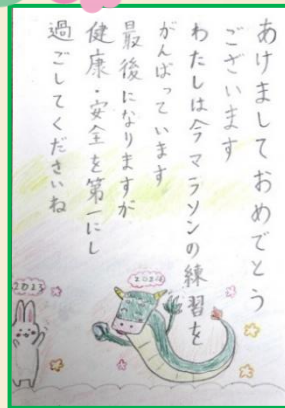 あけましておめでとう
ございます
わたしは今マラソンの練習を
がんばっています
最後になりますが
健康・安全を第一にし
過ごしてくださいね
2024
2023